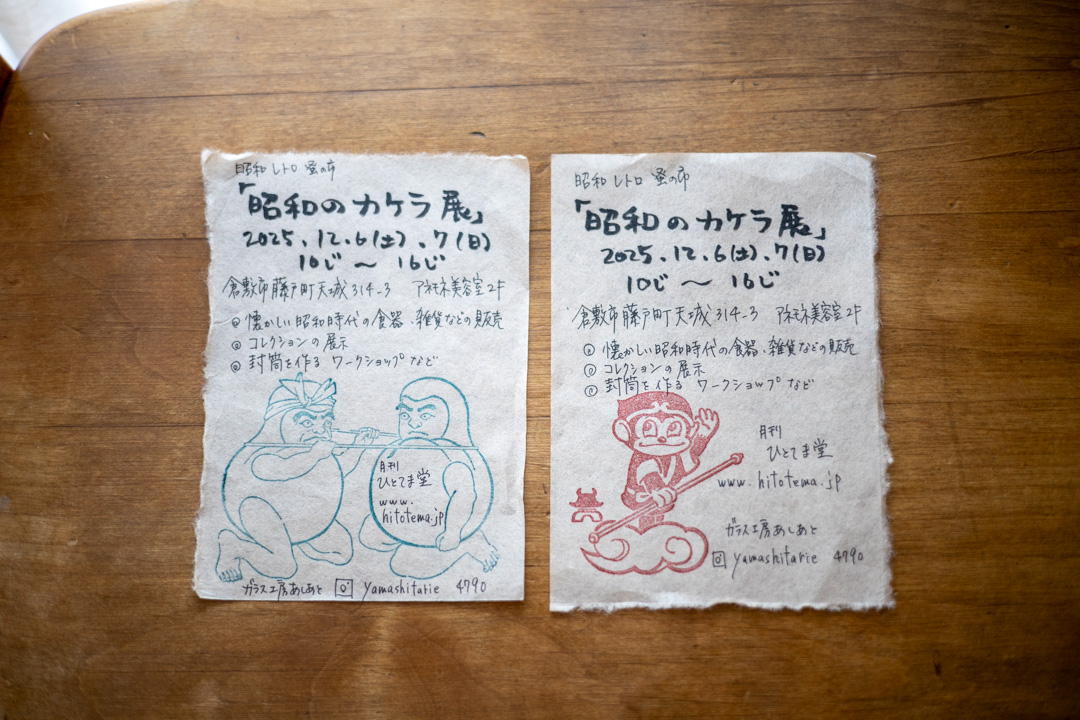 昭和 レトロ 蚤の市
「昭和のカケラ展」
2025.12.6(土).7(日)
10じ〜16じ
倉敷市藤戸町天城314-3 アネモネ美容室2F
◎懐かしい昭和時代の食器・雑貨などの販売
◎コレクションの展示
◎封筒を作る ワークショップなど
月刊
ひとてま堂
www.
hitotema.jp
ガラス工房あしあと yamashitarie 4790
昭和 レトロ 蚤の市
「昭和のカケラ展」
2025.12.6(土).7(日)
10じ〜16じ
倉敷市藤戸町天城314-3 アネモネ美容室2F
◎懐かしい昭和時代の食器・雑貨などの販売
◎コレクションの展示
◎封筒を作る ワークショップなど
月刊
ひとてま堂
www.hitotema.jp
ガラス工房あしあと
yamashitarie 4790